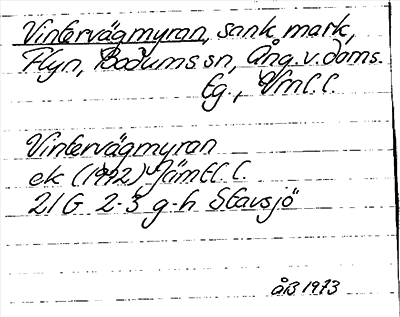 Vintervägmyran, sank mark,
Flyn, Bodums sn, Ång. v. doms.
lg., Vrnl. l.
Vintervägmyran
ek (1942) Jämtl. l.
21G 2-3 g-h Stavsjö
ÅB 1973